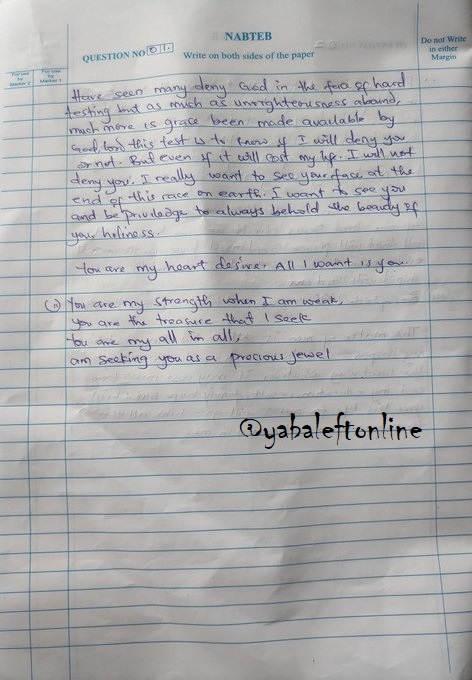 NABTEB
QUESTION NO 011.
Write on both sides of the paper
Do not Write
in either
Margin
For use
by
Marker 2
For use
by
Marker 1
Have seen many deny God in the face of hard
testing but as much as unrighteousness abound,
much more is grace been made available by
God, lord this test is to know if I will deny you
or not. But even if it will cost my life. I will not
deny you. I really want to see your face at the
end of this race on earth. I want to see you
and be priviledge to always behold the beauty of
your holiness.
You are my heart desire. All I want is you.
You are my strength when I am weak,
You are the treasure that I seek
You are my all in all,
am seeking you as a precious jewel
@yabaleftonline